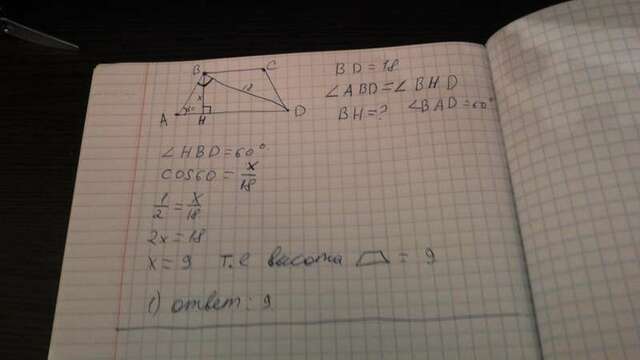 B C
A H D
60°
x
18
BD = 18
∠ABD = ∠BHD
BH = ? ∠BAD = 60°
∠HBD = 60°
cos60 = x/18
1/2 = x/18
2x = 18
x = 9 т.е высота = 9
1) ответ: 9